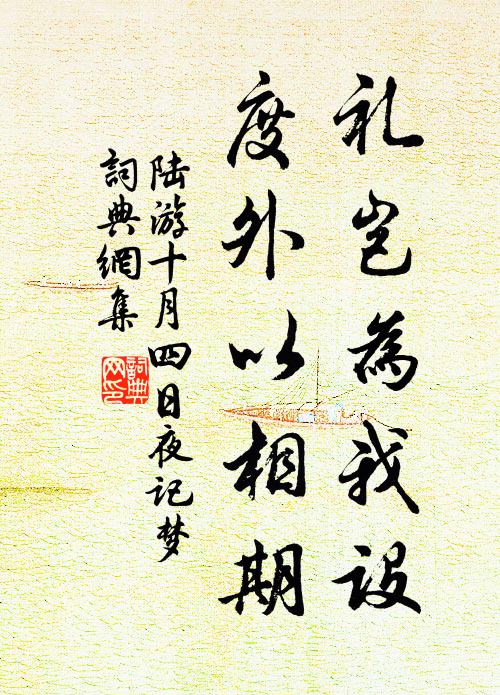 礼岂為我設
度外以相期
陆游十月四日夜记梦
詞典網集
詞典网印